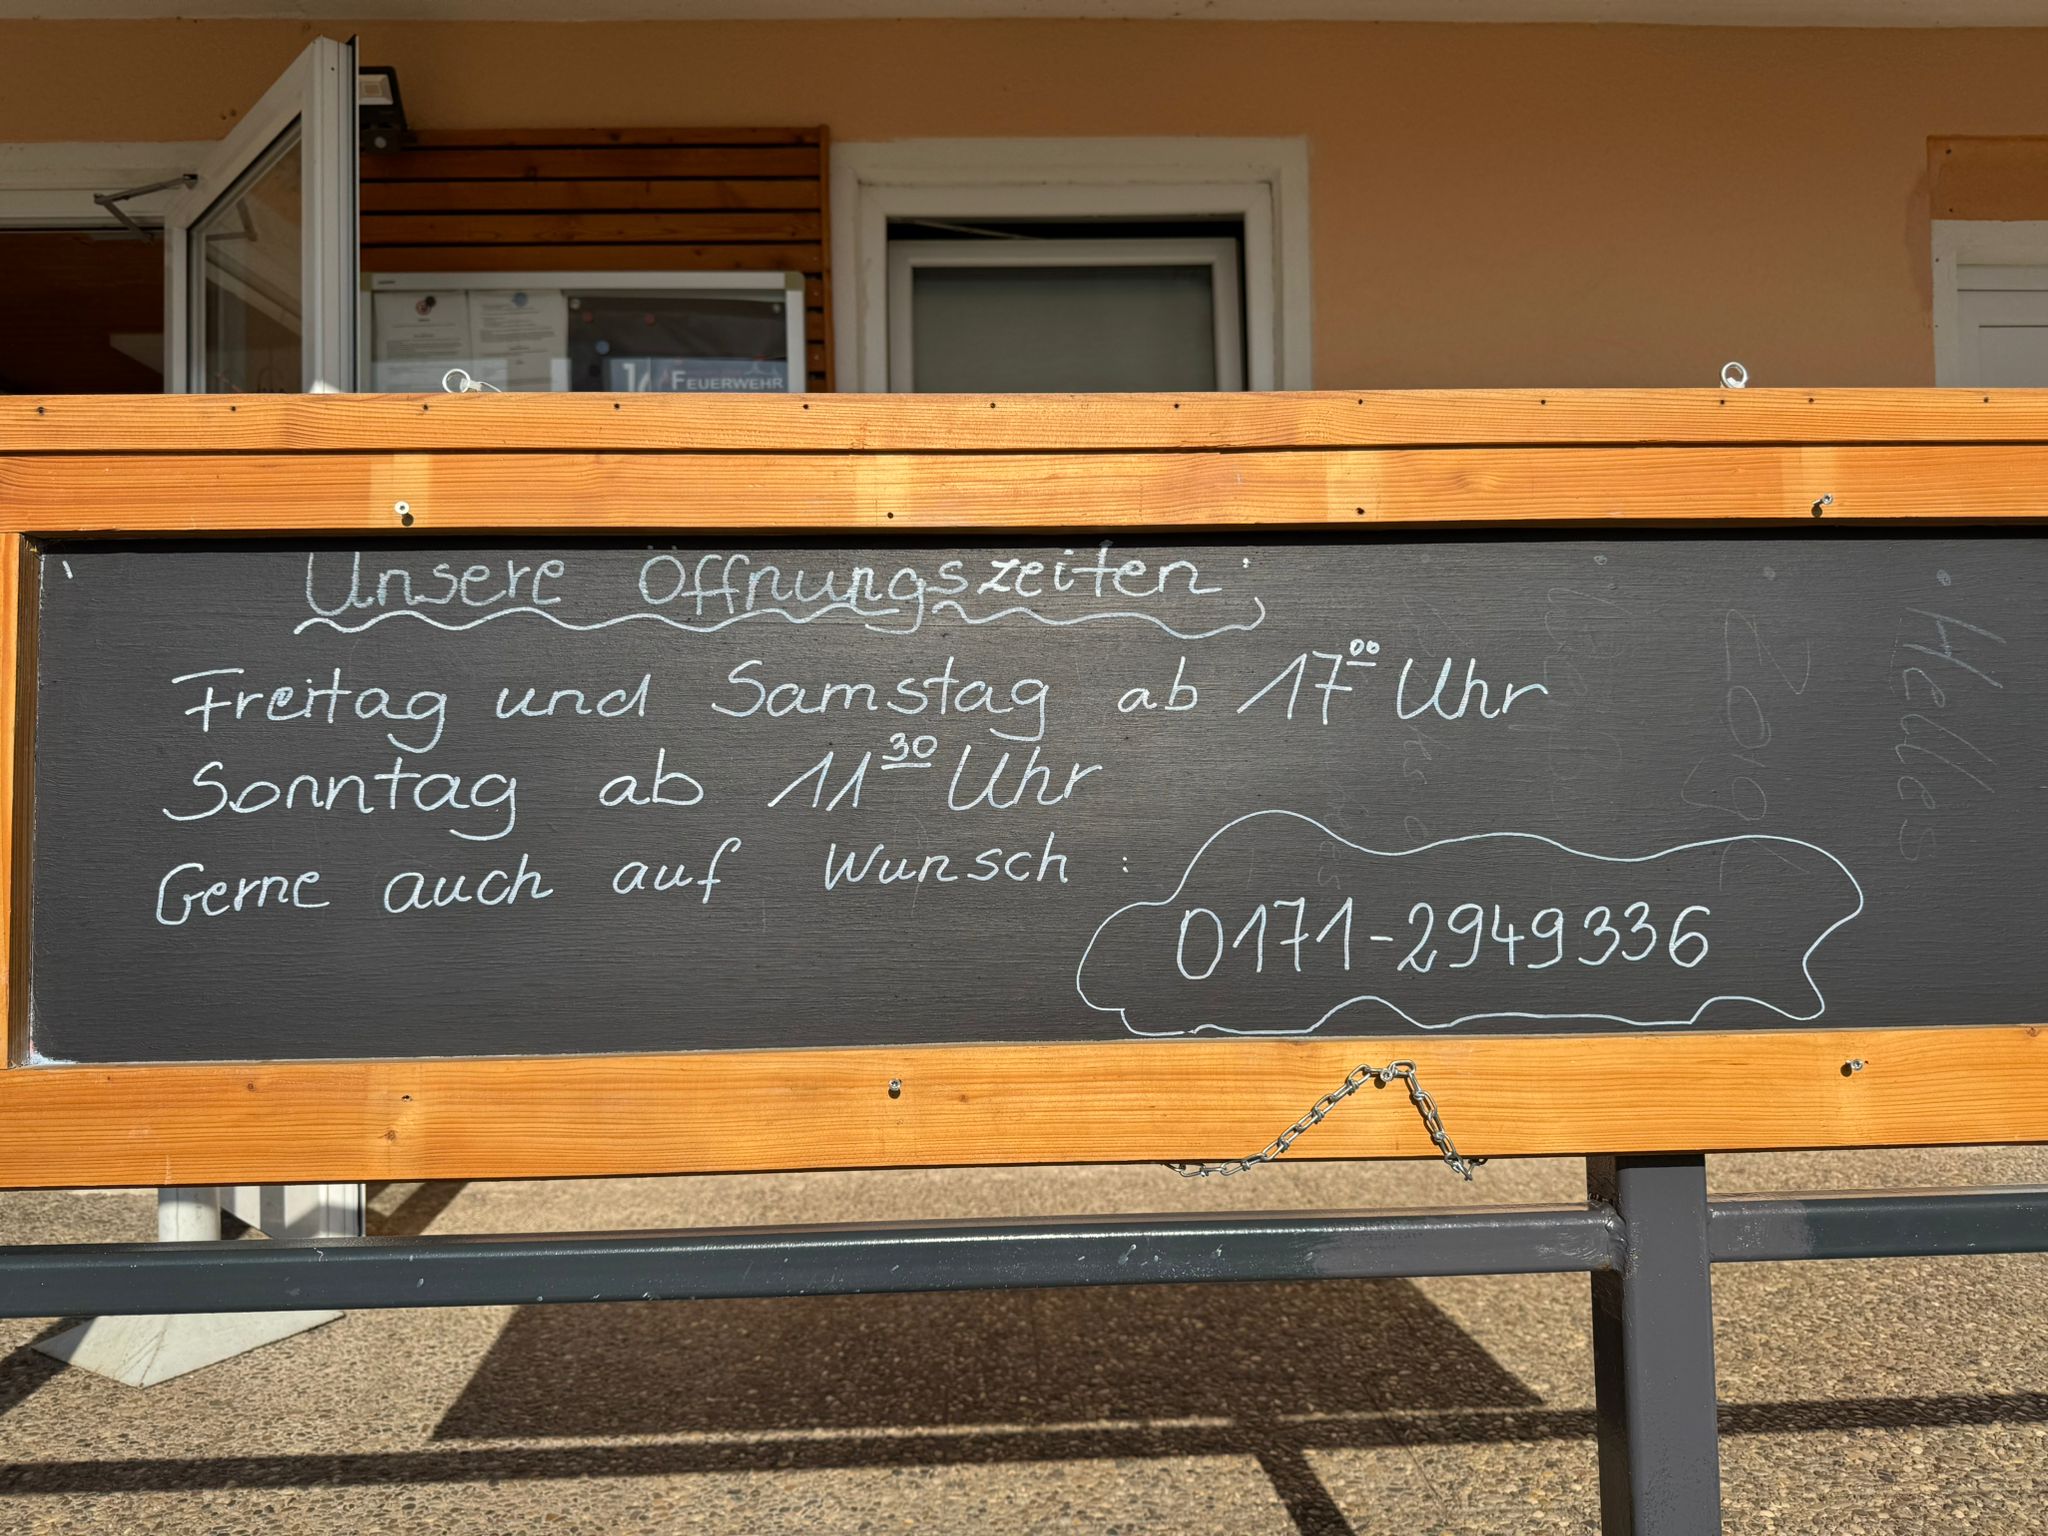 FEUERWEHR
Unsere Öffnungszeiten:
Freitag und Samstag ab 17⁰⁰ Uhr
Sonntag ab 11³⁰ Uhr
Gerne auch auf Wunsch:
0171-2949336
Helles